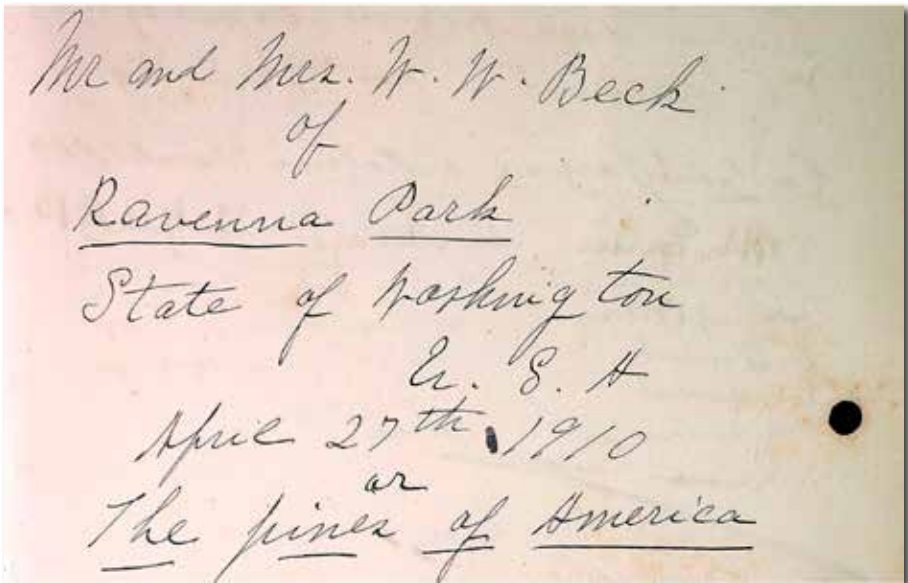 Mr and Mrs. W. W. Beck.
of
Ravenna Park
State of Washington
U. S. A
April 27th. 1910
or
The pines of America